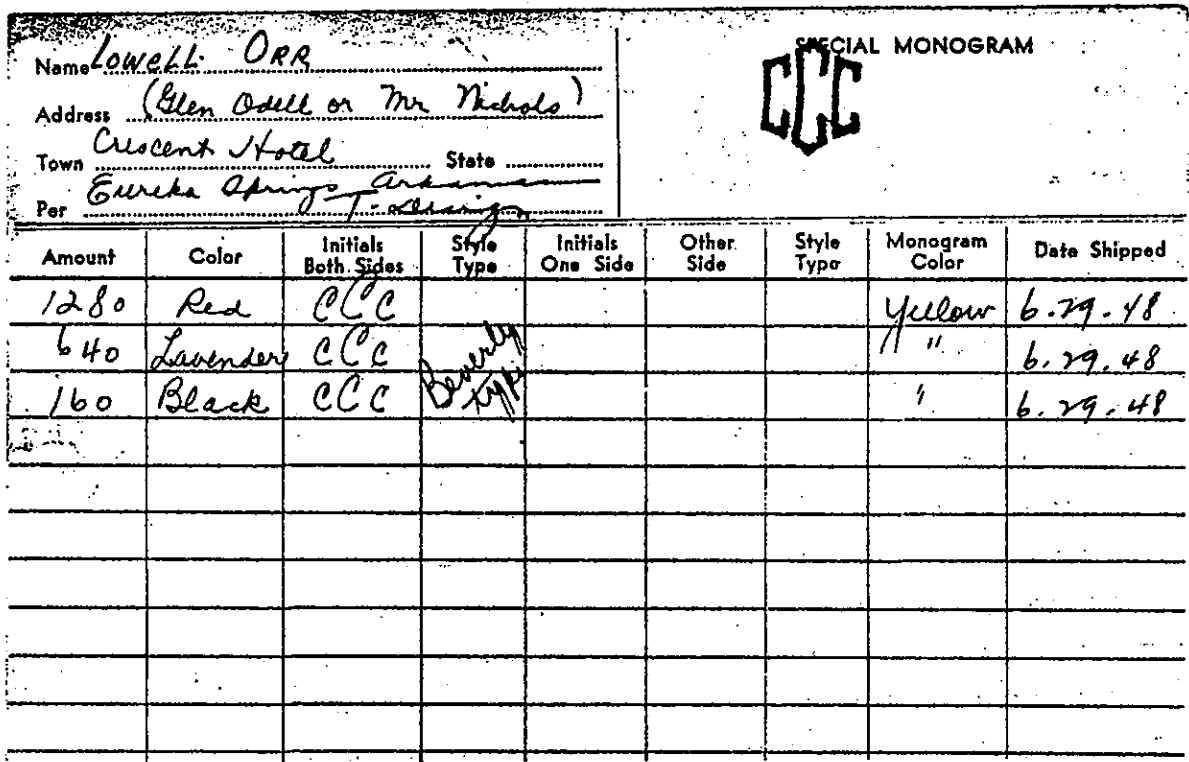 Name Lowell Orr
SPECIAL MONOGRAM
CCC
Address (Glen Odell or Mr Nichols)
Town Crescent Hotel State
Eureka Springs Arkansas
Per T.
Amount Color Initials Both Sides Style Type Initials One Side Other Side Style Type Monogram Color Date Shipped
1280 Red CCC Yellow 6.29.48
640 Lavender CCC Beverly type " 6.29.48
160 Black CCC " 6.29.48